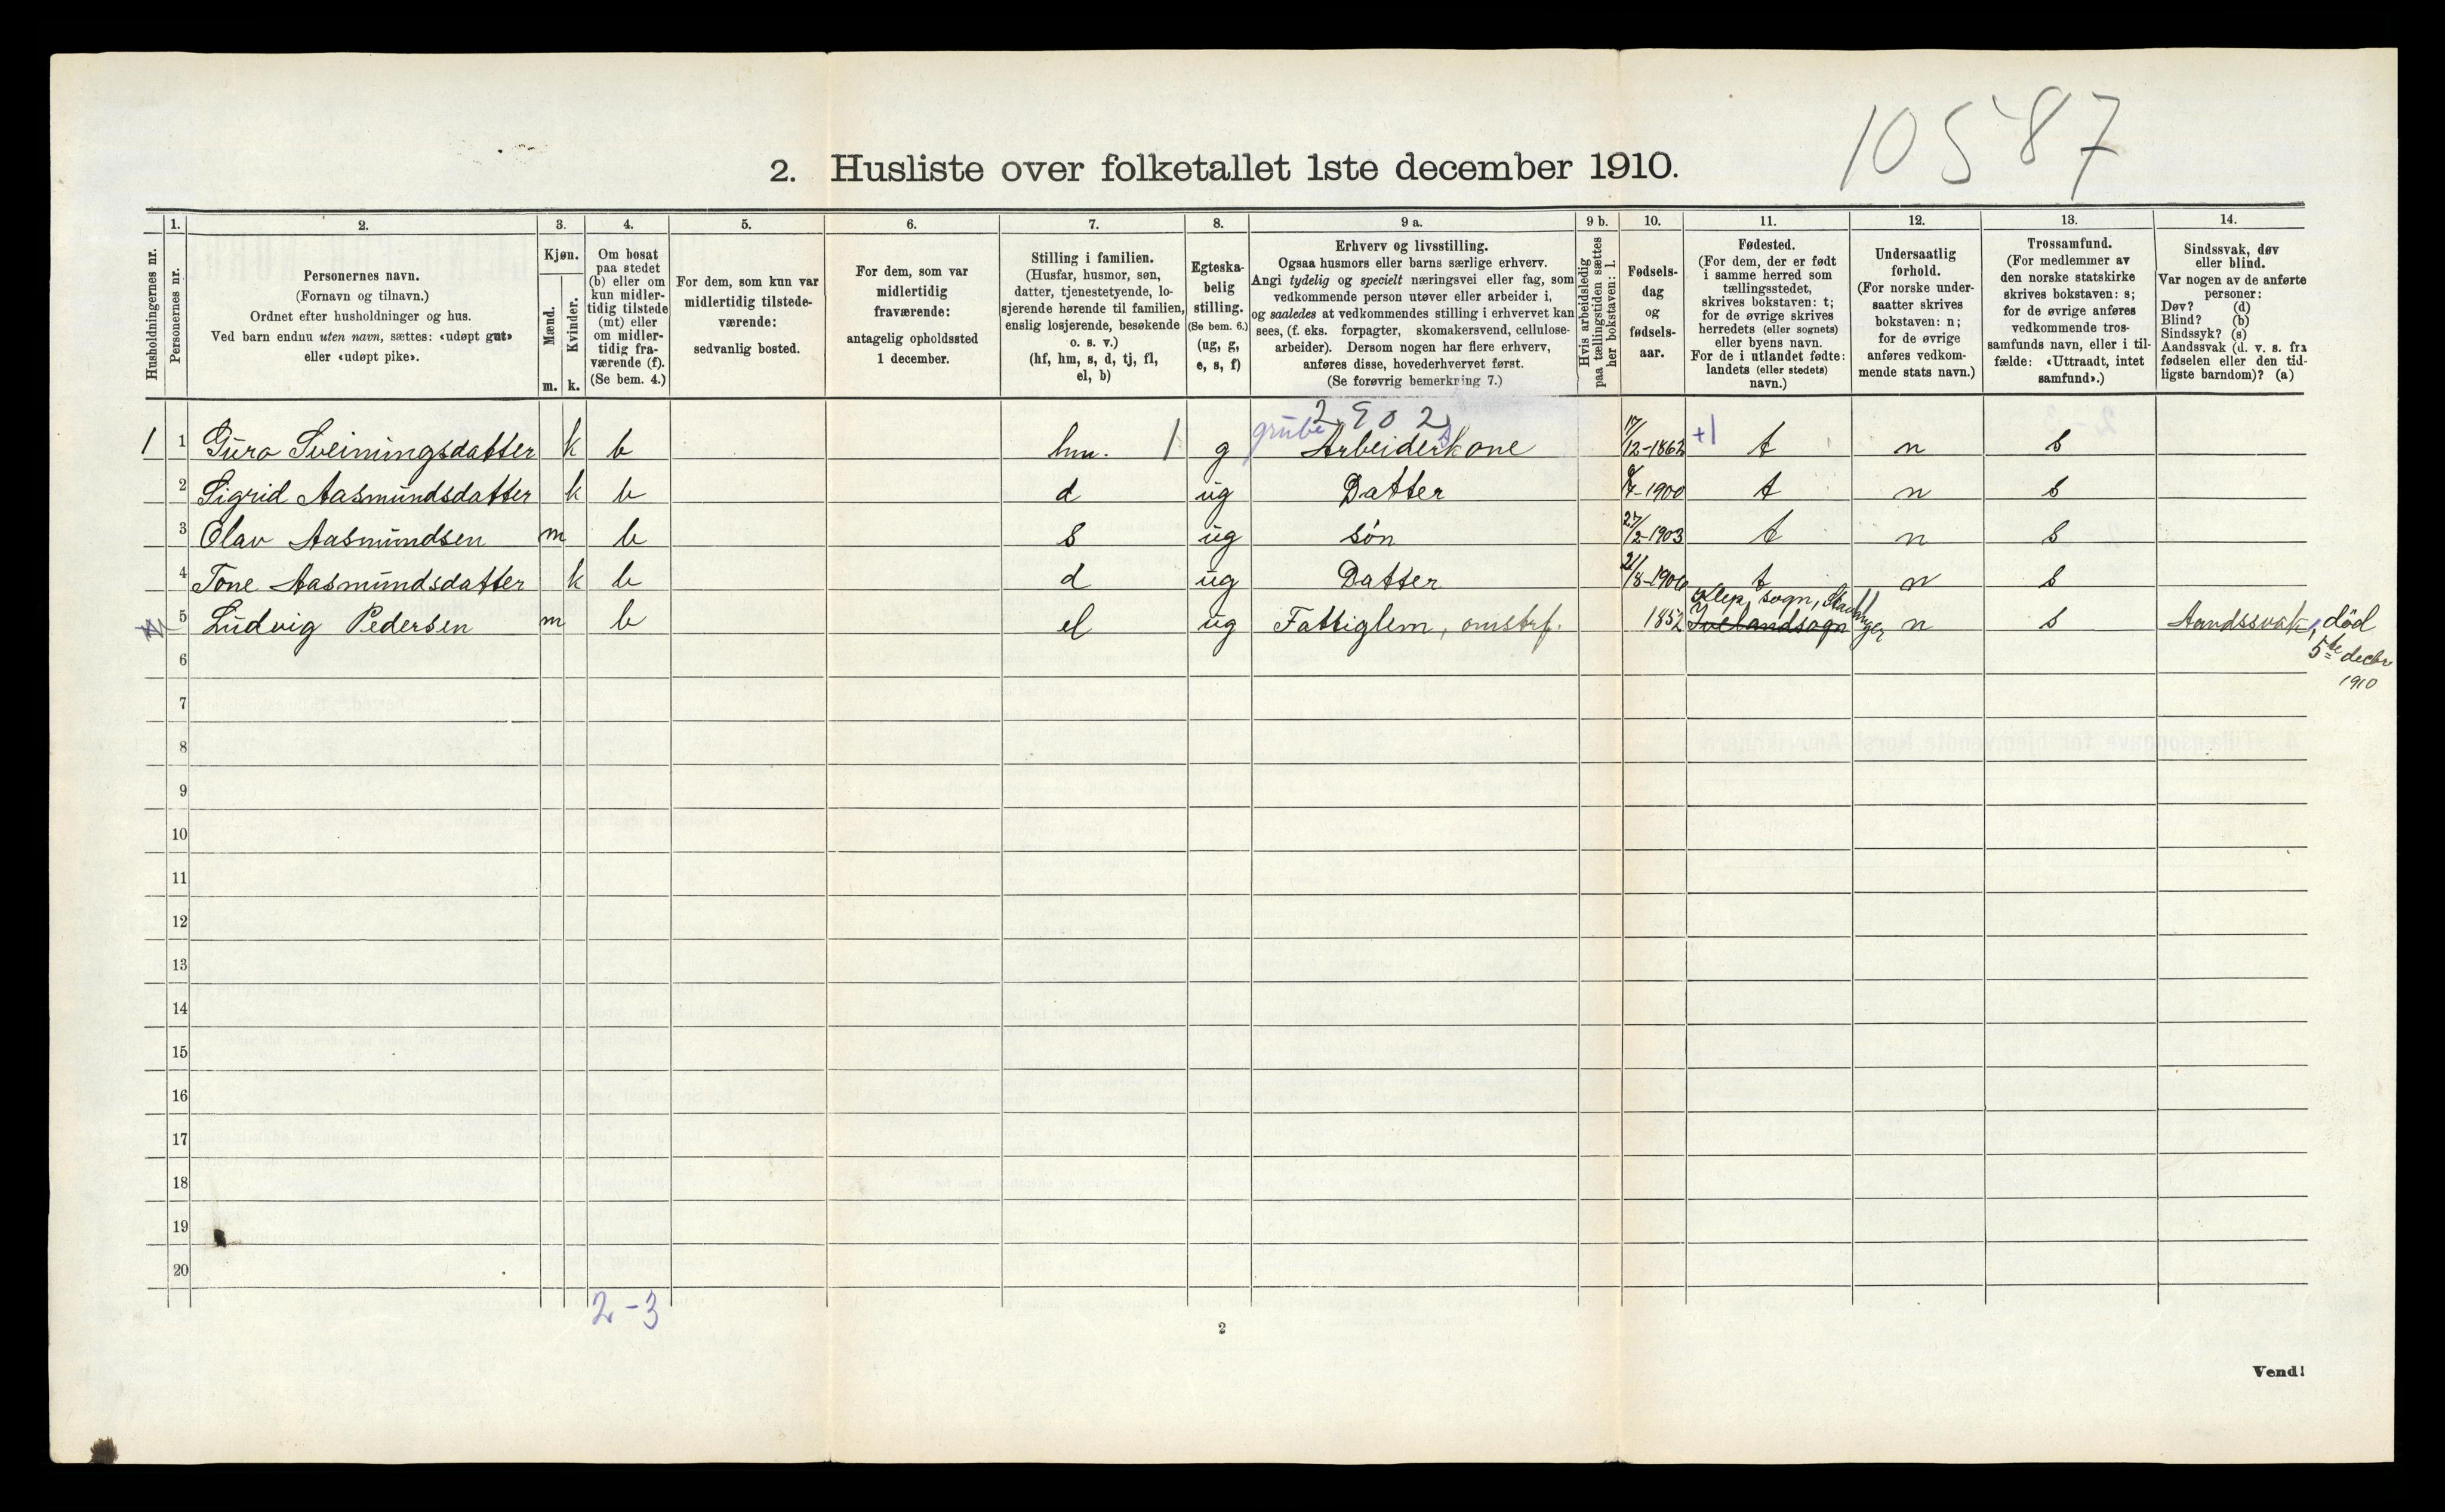 10587
2. Husliste over folketallet 1ste december 1910.
Husholdningernes nr.
1.
Personernes nr.
2.
Personernes navn.
(Fornavn og tilnavn.)
Ordnet efter husholdninger og hus.
Ved barn endnu uten navn, sættes: «udøpt gut»
eller «udøpt pike».
3.
Kjøn.
Mænd.
Kvinder.
m. k.
4.
Om bosat
paa stedet
(b) eller om
kun midler-
tidig tilstede
(mt) eller
om midler-
tidig fra-
værende (f).
(Se bem. 4.)
5.
For dem, som kun var
midlertidig tilstede-
værende:
sedvanlig bosted.
6.
For dem, som var
midlertidig
fraværende:
antagelig opholdssted
1 december.
7.
Stilling i familien.
(Husfar, husmor, søn,
datter, tjenestetyende, lo-
sjerende hørende til familien,
enslig losjerende, besøkende
o. s. v.)
(hf, hm, s, d, tj, fl,
el, b)
8.
Egteska-
belig
stilling.
(Se bem. 6.)
(ug, g,
e, s, f)
9 a.
Erhverv og livsstilling.
Ogsaa husmors eller barns særlige erhverv.
Angi tydelig og specielt næringsvei eller fag, som
vedkommende person utøver eller arbeider i,
og saaledes at vedkommendes stilling i erhvervet kan
sees, (f. eks. forpagter, skomakersvend, cellulose-
arbeider). Dersom nogen har flere erhverv,
anføres disse, hovederhvervet først.
(Se forøvrig bemerkning 7.)
9 b.
Hvis arbeidsledig
paa tællingstiden sættes
her bokstaven: l.
10.
Fødsels-
dag
og
fødsels-
aar.
11.
Fødested.
(For dem, der er født
i samme herred som
tællingsstedet,
skrives bokstaven: t;
for de øvrige skrives
herredets (eller sognets)
eller byens navn.
For de i utlandet fødte:
landets (eller stedets)
navn.)
12.
Undersaatlig
forhold.
(For norske under-
saatter skrives
bokstaven: n;
for de øvrige
anføres vedkom-
mende stats navn.)
13.
Trossamfund.
(For medlemmer av
den norske statskirke
skrives bokstaven: s;
for de øvrige anføres
vedkommende tros-
samfunds navn, eller i til-
fælde: «Uttraadt, intet
samfund».)
14.
Sindssvak, døv
eller blind.
Var nogen av de anførte
personer:
Døv? (d)
Blind? (b)
Sindssyk? (s)
Aandssvak (d. v. s. fra
fødselen eller den tid-
ligste barndom)? (a)
2902
grube
1 1 Guro Sveinungsdatter k b hm. 1 g Arbeiderskone 17/12-1862 +1 t n s
2 Sigrid Aasmundsdatter k b d ug Datter -1900 t n s
3 Olav Aasmundsen m b s ug søn 27/2-1903 t n s
4 Tone Aasmundsdatter k b d ug Datter 21/8-1906 t n s
Klep sogn, Stavanger
5 Ludvig Pedersen m b el ug Fattiglem, omstrf. 1852 Ivelandsogn n s Aandssvak, død
5te decbr
1910
6
7
8
9
10
11
12
13
14
15
16
17
18
19
20
2-3
2
Vend!